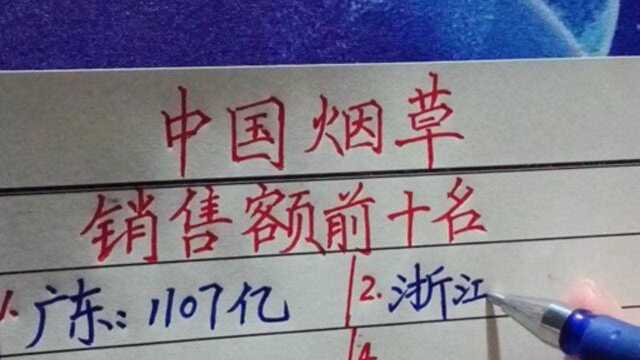 中国烟草
销售额前十名
1. 广东：1107亿 2. 浙江
4.